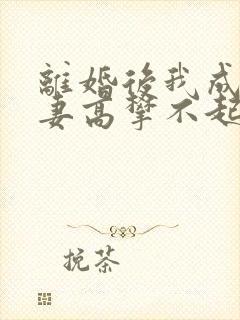 離婚後我成
妻高攀不起
挽茶